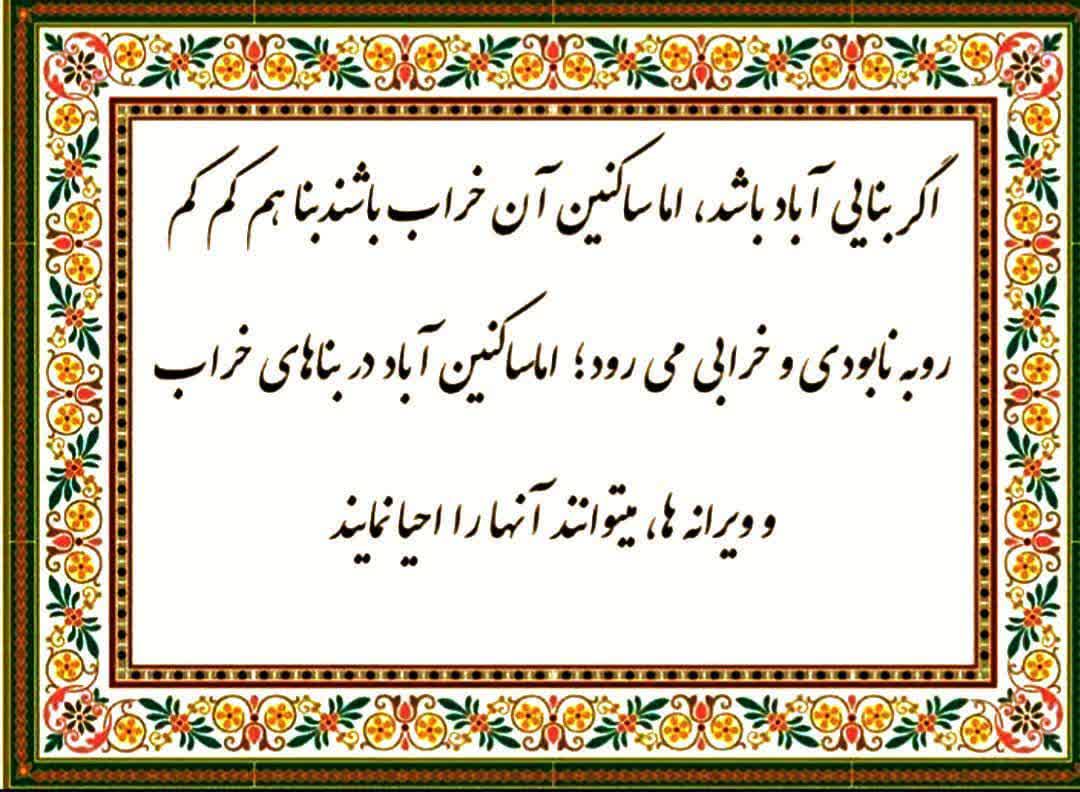 اگر بنایی آباد باشد، اما ساکنین آن خراب باشند بنا هم کم کم
رو به نابودی و خرابی می رود؛ اما ساکنین آباد در بناهای خراب
و ویرانه ها، میتوانند آنها را احیا نمایند